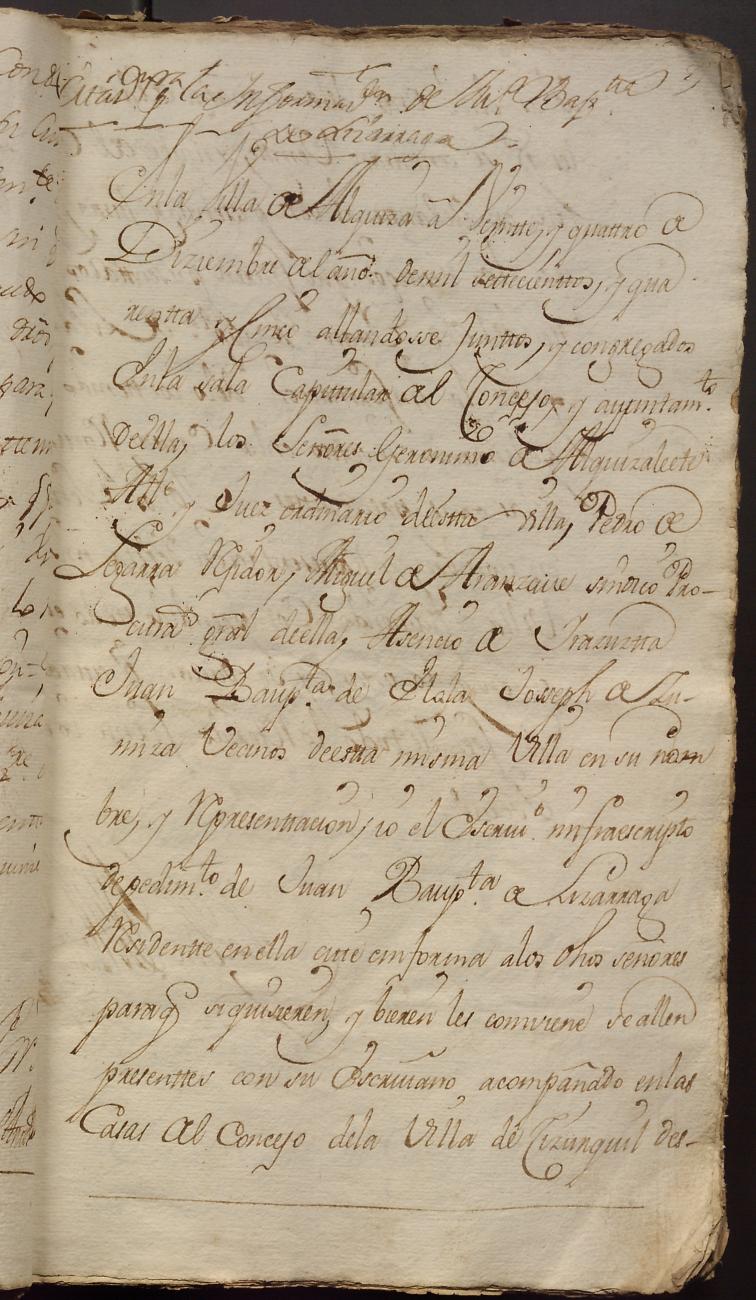 Citaᵒⁿ para las Informasⁿˢ de Juⁿ Bapᵗᵗᵃ
de Lizarraga
Enla Villa de Alquiza â Veintte, y quattro de
Diziembre del año de mil settecienttos, y qua
rentta y Cinco allandosse Junttos, y congregados
Enla sala Capittular del Concejo, y ayuntamᵗᵒ
de ella, los Señores Geronimo de Alquizalette
Allᵉ y Juez ordinario de estta Villa, Pedro de
Legarra Rejidor, Miguel de Aranzave sindico Pro-
curaᵒʳ gral de ella, Asencio de Irazuztta
Juan Baupᵗᵃ de Olala Joseph de Zu-
miza Vecinos de estta misma Villa en su nom
bre, y Representtacion, io el Escriuᵒ infraescripto
de pedimᵗᵒ de Juan Baupᵗᵃ de Lizarraga
Residentte en ella citte en forma alos dhos señores
paraq̃ si quisieren, y bieren les comviene se allen
presenttes con su Escriuano acompañado en las
Casas del Concejo de la Villa de Cizurquil des-